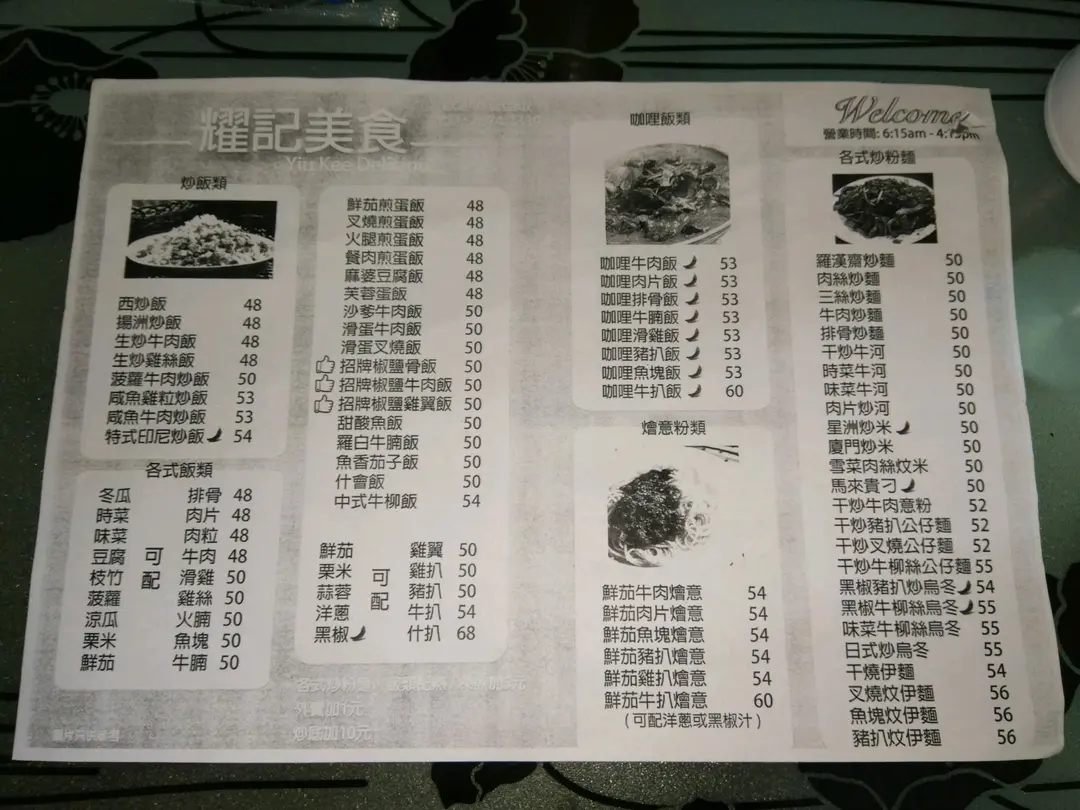 耀記美食
Yiu Kee
炒飯類
西炒飯 48
揚洲炒飯 48
生炒牛肉飯 48
生炒雞絲飯 48
菠蘿牛肉炒飯 50
咸魚雞粒炒飯 53
咸魚牛肉炒飯 53
特式印尼炒飯 54
各式飯類
冬瓜 排骨 48
時菜 肉片 48
味菜 肉粒 48
豆腐 可 牛肉 48
枝竹 配 滑雞 50
菠蘿 雞絲 50
涼瓜 火腩 50
栗米 魚塊 50
鮮茄 牛腩 50
鮮茄煎蛋飯 48
叉燒煎蛋飯 48
火腿煎蛋飯 48
餐肉煎蛋飯 48
麻婆豆腐飯 48
芙蓉蛋飯 48
沙爹牛肉飯 50
滑蛋牛肉飯 50
滑蛋叉燒飯 50
招牌椒鹽骨飯 50
招牌椒鹽牛肉飯 50
招牌椒鹽雞翼飯 50
甜酸魚飯 50
羅白牛腩飯 50
魚香茄子飯 50
什會飯 50
中式牛柳飯 54
鮮茄 雞翼 50
栗米 可 雞扒 50
蒜蓉 配 豬扒 50
洋蔥 牛扒 54
黑椒 什扒 68
外賣加1元
炒底加10元
咖哩飯類
咖哩牛肉飯 53
咖哩肉片飯 53
咖哩排骨飯 53
咖哩牛腩飯 53
咖哩滑雞飯 53
咖哩豬扒飯 53
咖哩魚塊飯 53
咖哩牛扒飯 60
燴意粉類
鮮茄牛肉燴意 54
鮮茄肉片燴意 54
鮮茄魚塊燴意 54
鮮茄豬扒燴意 54
鮮茄雞扒燴意 54
鮮茄牛扒燴意 60
(可配洋蔥或黑椒汁)
Welcome
營業時間: 6:15am - 4:15pm
各式炒粉麵
羅漢齋炒麵 50
肉絲炒麵 50
三絲炒麵 50
牛肉炒麵 50
排骨炒麵 50
干炒牛河 50
時菜牛河 50
味菜牛河 50
肉片炒河 50
星洲炒米 50
廈門炒米 50
雪菜肉絲炆米 50
馬來貴刁 50
干炒牛肉意粉 52
干炒豬扒公仔麵 52
干炒叉燒公仔麵 52
干炒牛柳絲公仔麵 55
黑椒豬扒炒烏冬 54
黑椒牛柳絲烏冬 55
味菜牛柳絲烏冬 55
日式炒烏冬 55
干燒伊麵 54
叉燒炆伊麵 56
魚塊炆伊麵 56
豬扒炆伊麵 56